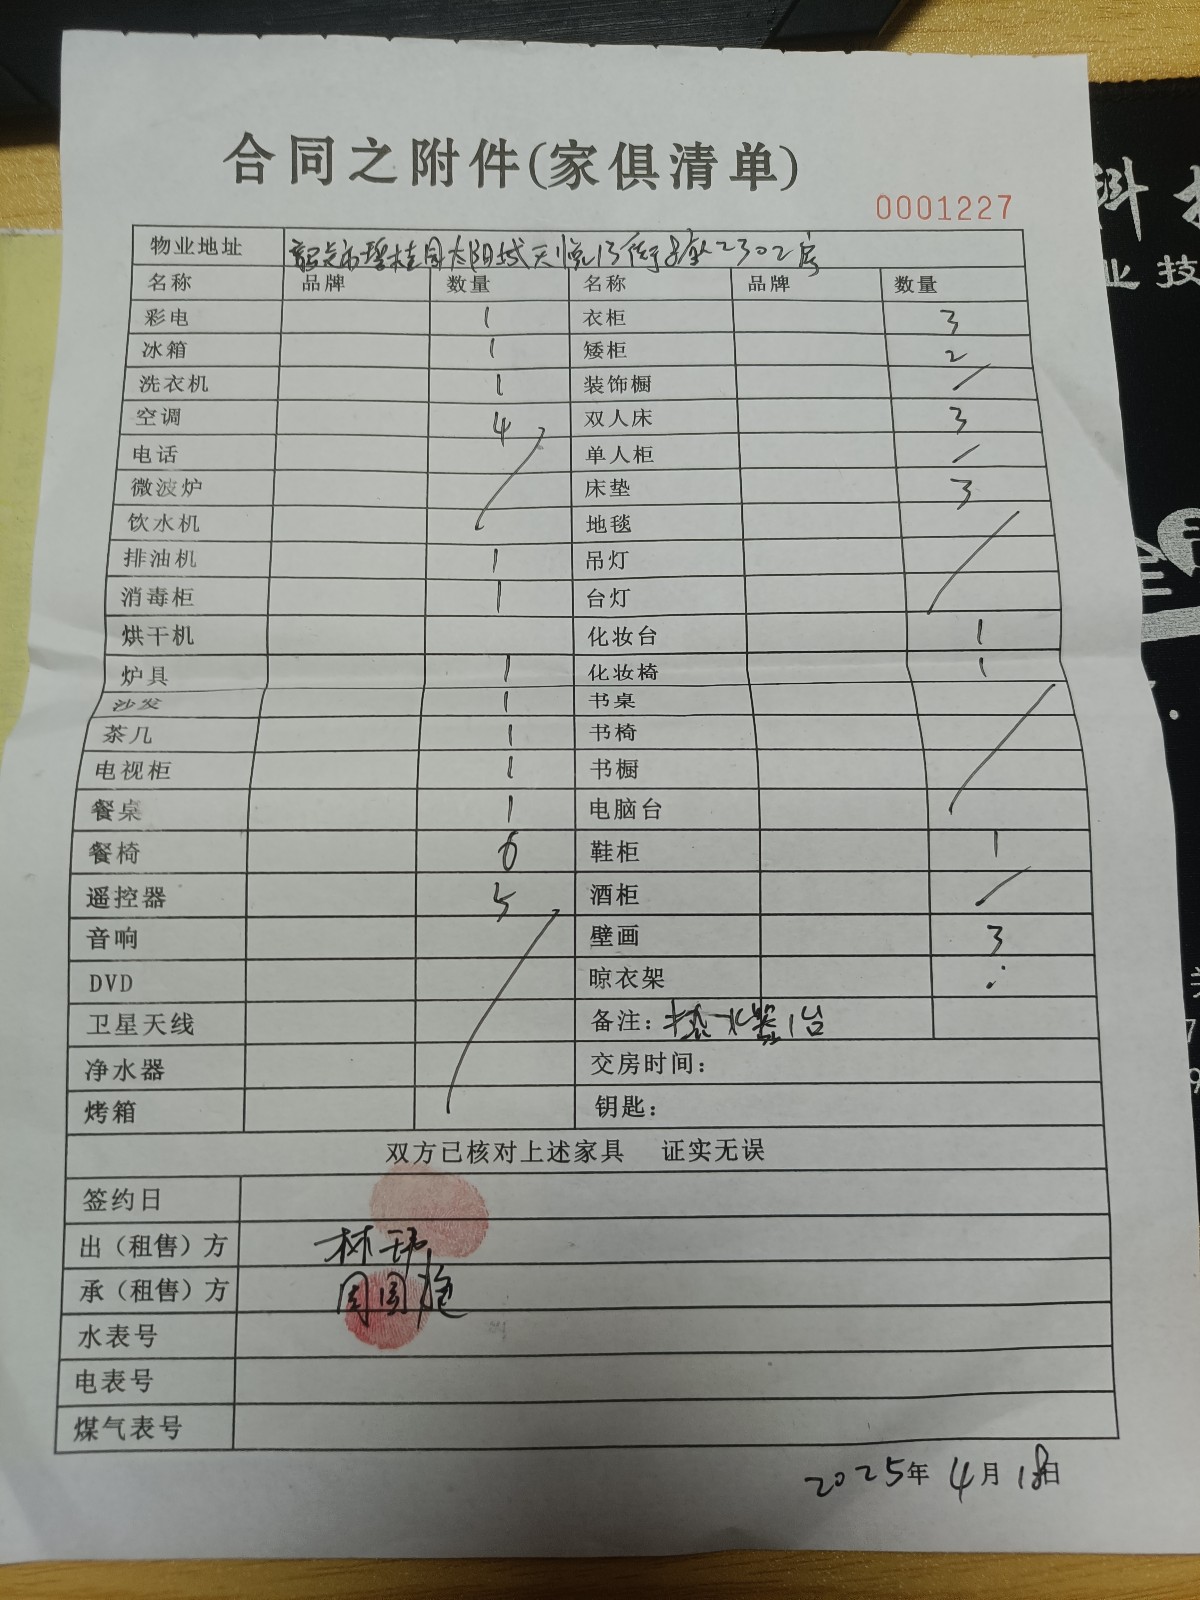 合同之附件(家俱清单)
0001227
物业地址 韶关市碧桂园太阳城天悦13街8座2302房
名称 品牌 数量 名称 品牌 数量
彩电 1 衣柜 3
冰箱 1 矮柜 2
洗衣机 1 装饰橱 /
空调 4 双人床 3
电话 单人柜 /
微波炉 床垫 3
饮水机 地毯
排油机 1 吊灯
消毒柜 1 台灯
烘干机 化妆台 1
炉具 1 化妆椅 1
沙发 1 书桌
茶几 1 书椅
电视柜 1 书橱
餐桌 1 电脑台
餐椅 6 鞋柜 1
遥控器 5 酒柜 /
音响 壁画 3
DVD 晾衣架
卫星天线 备注：热水器1台
净水器 交房时间：
烤箱 钥匙：
双方已核对上述家具 证实无误
签约日
出（租售）方 林玮
承（租售）方
水表号
电表号
煤气表号
2025年4月18日
科
业技